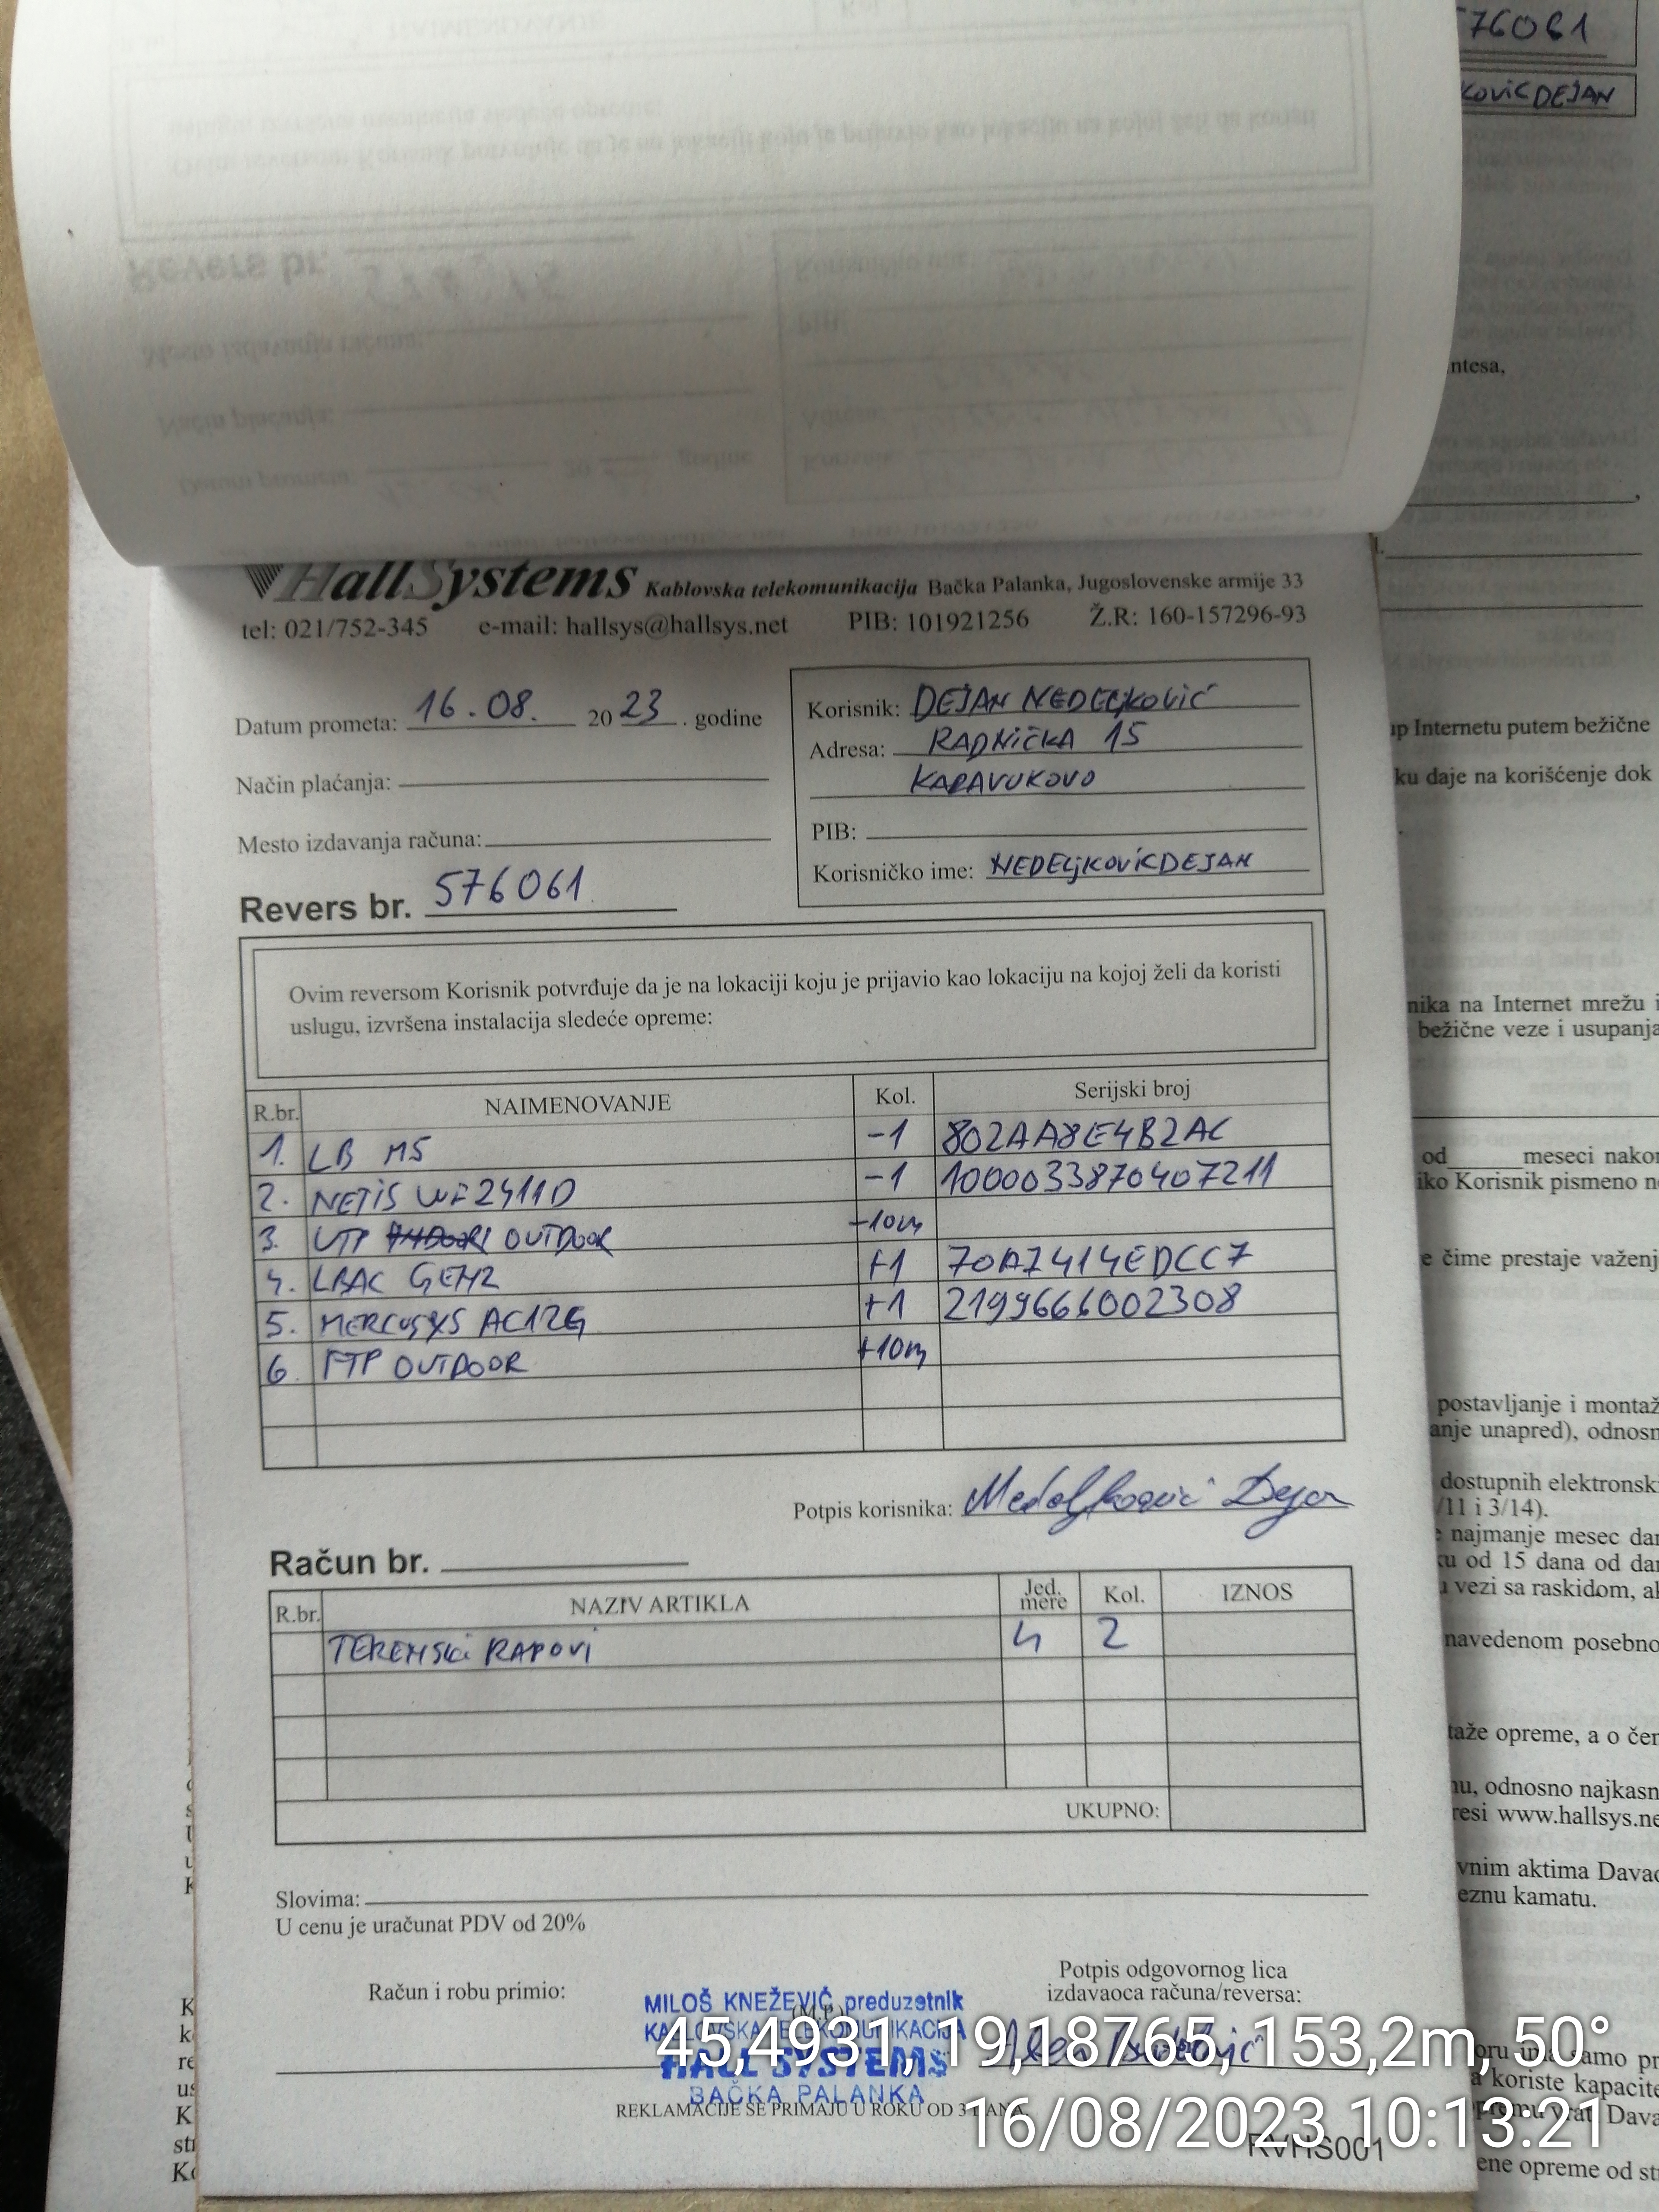 576061
KOVICDEJAN
ntesa,
HallSystems Kablovska telekomunikacija Bačka Palanka, Jugoslovenske armije 33
tel: 021/752-345 e-mail: hallsys@hallsys.net PIB: 101921256 Ž.R: 160-157296-93
Datum prometa: 16.08. 20 23 . godine
Način plaćanja:
Mesto izdavanja računa:
Revers br. 576061
Korisnik: DEJAN NEDELJKOVIĆ
Adresa: RADNIČKA 15
KARAVUKOVO
PIB:
Korisničko ime: NEDELJKOVICDEJAN
Ovim reversom Korisnik potvrđuje da je na lokaciji koju je prijavio kao lokaciju na kojoj želi da koristi
uslugu, izvršena instalacija sledeće opreme:
R.br. NAIMENOVANJE Kol. Serijski broj
1. LB M5 -1 802AA8E4B2AC
2. NETIS WF2411D -1 1000033870407211
3. UTP OUTDOOR -10m
4. LBAC GEN2 +1 70A7414EDCC7
5. MERCUSYS AC12G +1 2199666002308
6. FTP OUTDOOR +10m
Potpis korisnika: Nedeljković Dejan
Račun br.
R.br. NAZIV ARTIKLA Jed. mere Kol. IZNOS
TERENSKI RADOVI h 2
UKUPNO:
Slovima:
U cenu je uračunat PDV od 20%
Račun i robu primio:
Potpis odgovornog lica
izdavaoca računa/reversa:
MILOŠ KNEŽEVIĆ preduzetnik
(M.P.)
KABLOVSKA TELEKOMUNIKACIJA
HALL SYSTEMS
BAČKA PALANKA
REKLAMACIJE SE PRIMAJU U ROKU OD 3 DANA.
RVHS001
45,4931, 19,18765, 153,2m, 50°
16/08/2023 10:13:21
up Internetu putem bežične
ku daje na korišćenje dok
nika na Internet mrežu i
bežične veze i usupanja
od meseci nakon
iko Korisnik pismeno ne
e čime prestaje važenj
postavljanje i montaž
anje unapred), odnosn
dostupnih elektronski
/11 i 3/14).
najmanje mesec dan
ku od 15 dana od dan
u vezi sa raskidom, ak
navedenom posebno
taže opreme, a o čem
nu, odnosno najkasn
resi www.hallsys.ne
vnim aktima Davao
eznu kamatu.
oru ima samo pr
a koriste kapacite
opremu vrati Dava
ene opreme od str